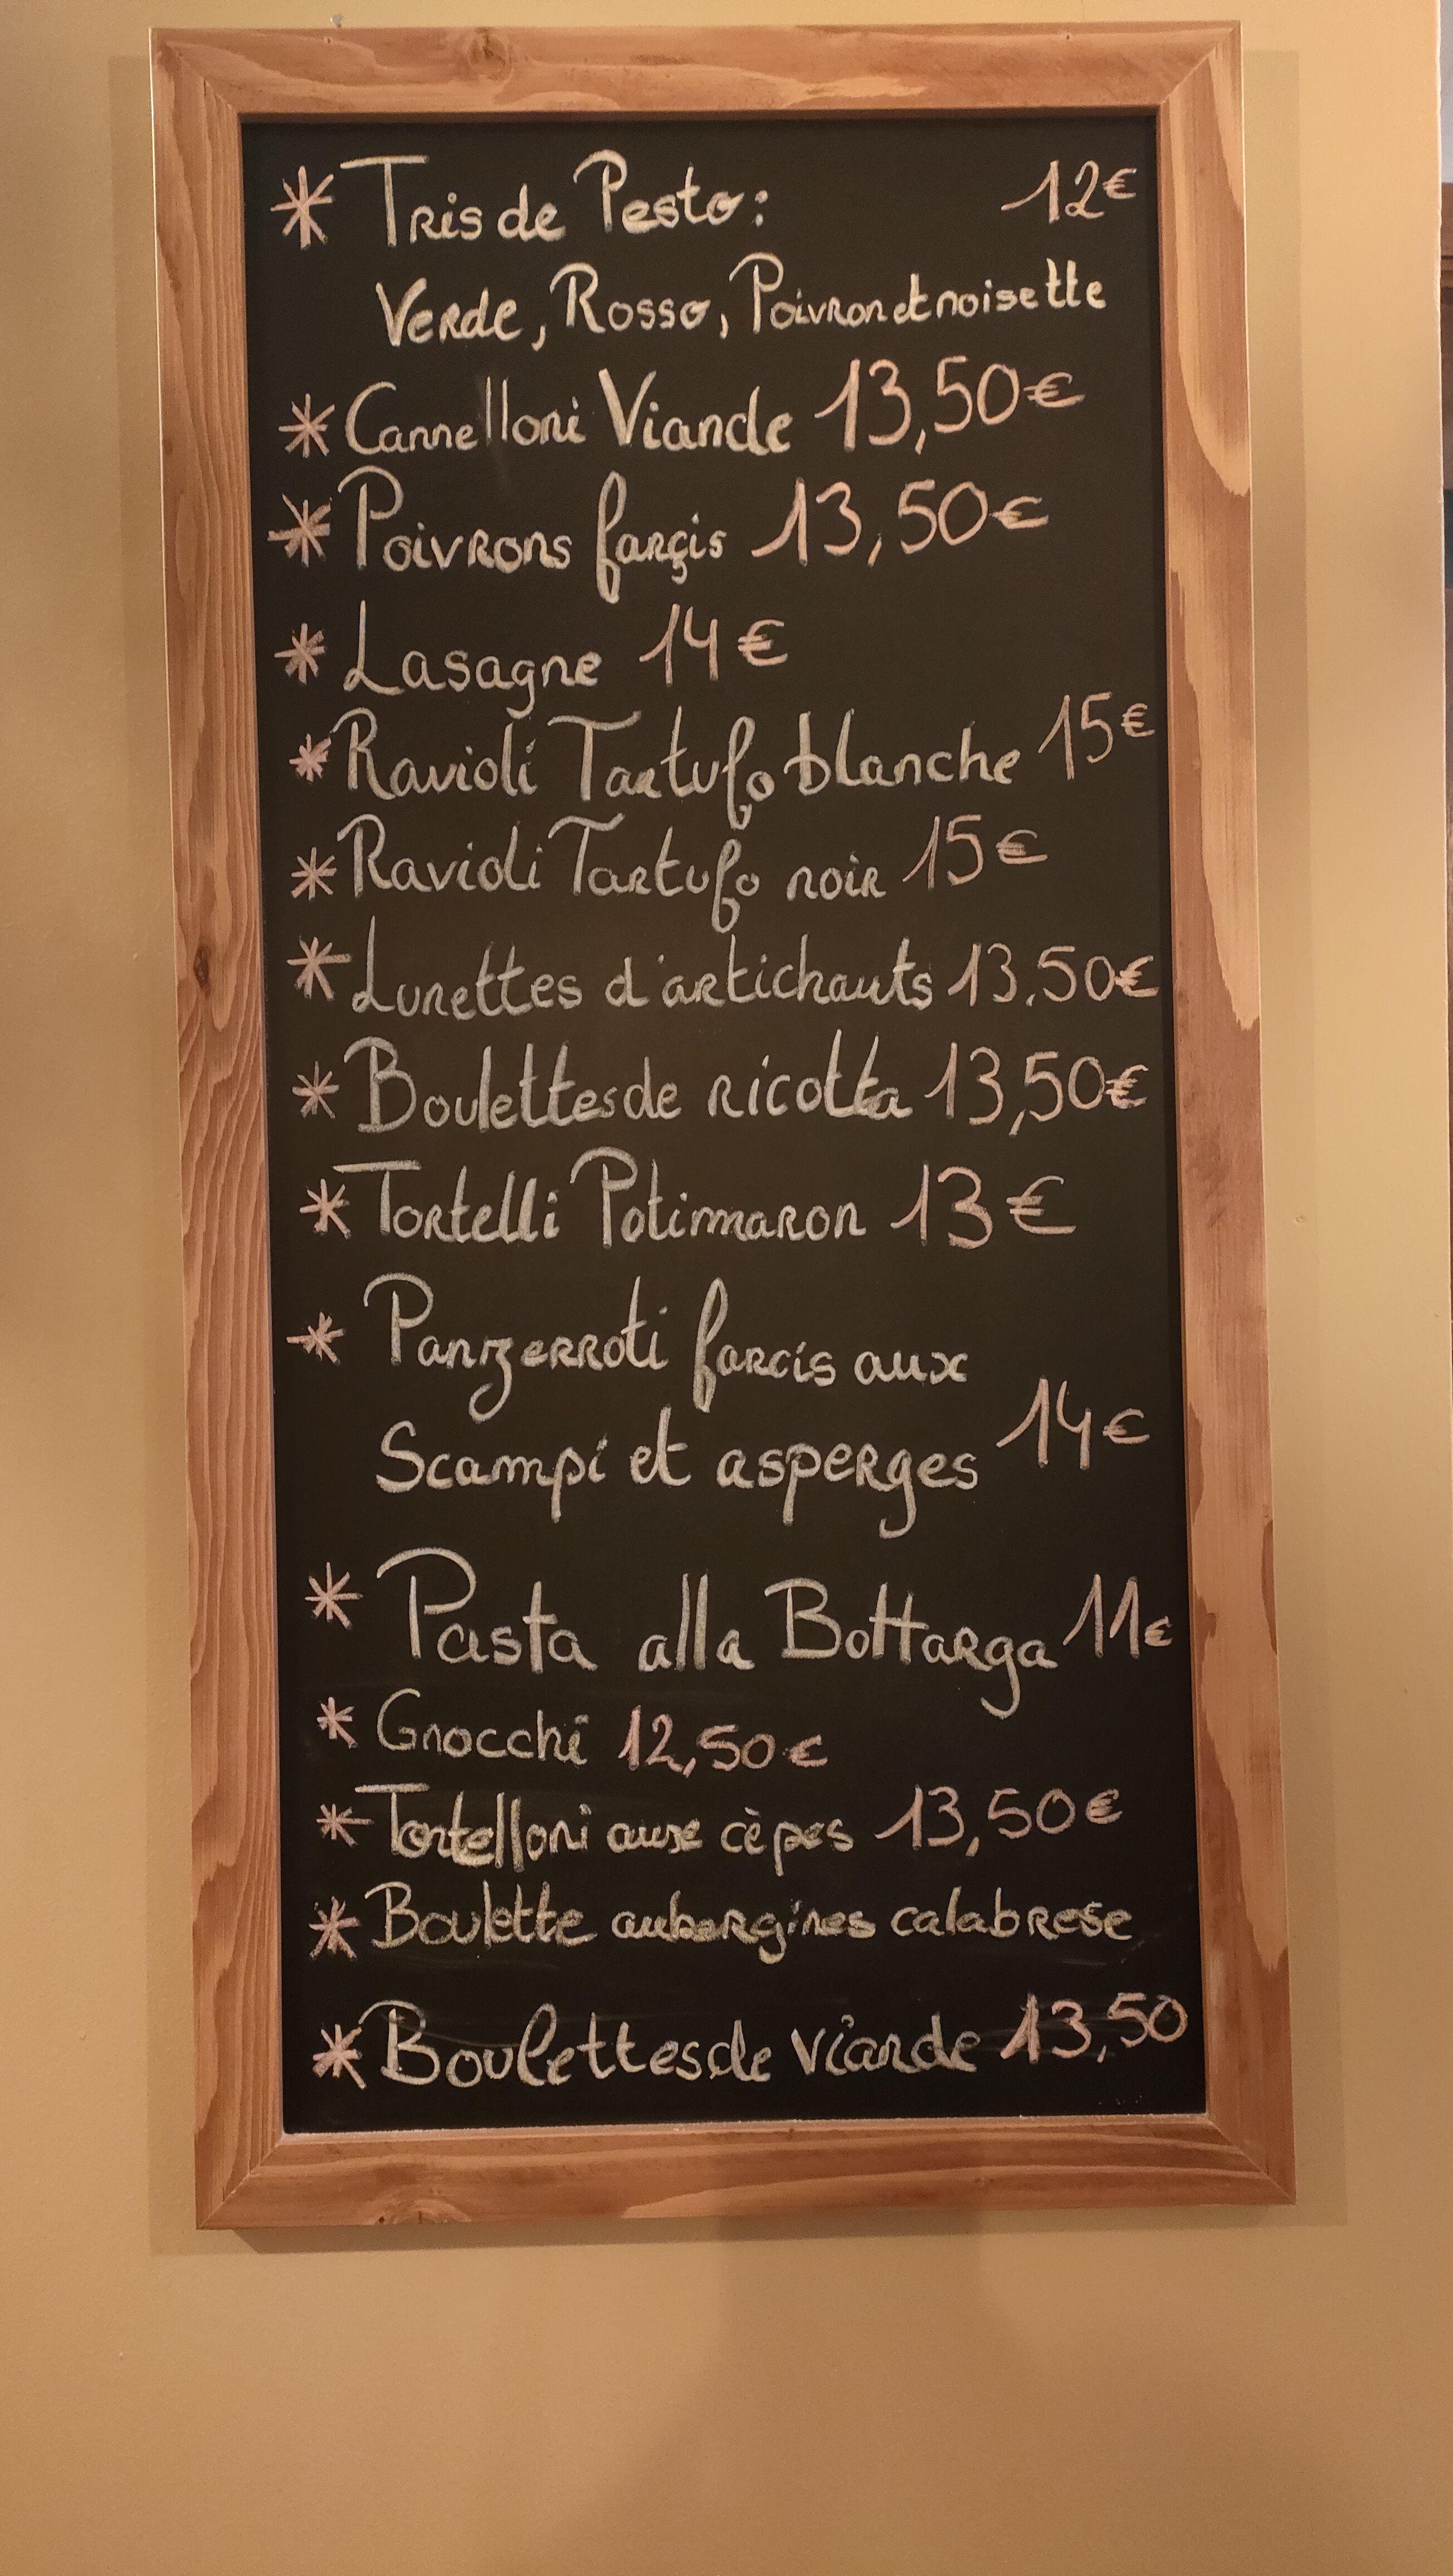 * Tris de Pesto: 12€
Verde, Rosso, Poivron et noisette
* Cannelloni Viande 13,50€
* Poivrons farçis 13,50€
* Lasagne 14€
* Ravioli Tartufo blanche 15€
* Ravioli Tartufo noir 15€
* Lunettes d'artichauts 13.50€
* Boulettes de ricotta 13,50€
* Tortelli Potimaron 13€
* Panzerroti farcis aux
Scampi et asperges 14€
* Pasta alla Bottarga 11€
* Gnocchi 12,50€
* Tortelloni aux cèpes 13,50€
* Boulette aubergines calabrese
* Boulettes de viande 13,50